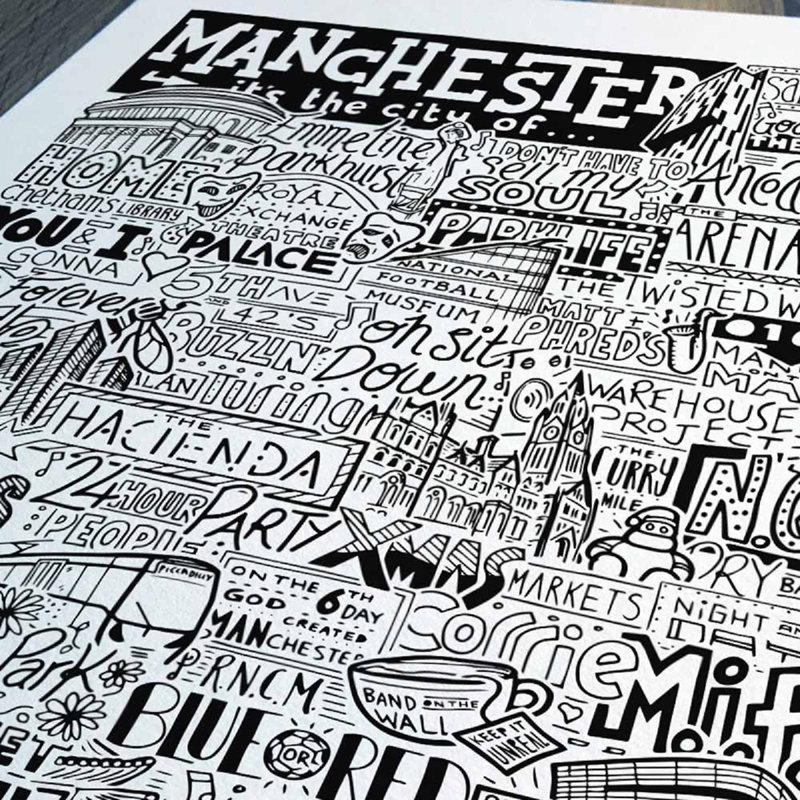 MANCHESTER
it's the city of...
Emmeline
Pankhurst
I DON'T HAVE TO
sell my
SOUL
HOME
Chetham's LIBRARY
ROYAL
EXCHANGE
THEATRE
PARKLIFE
THE
ARENA
YOU & I
GONNA
PALACE
NATIONAL
FOOTBALL
MUSEUM
Forever
5TH AVE
AND
42'S
THE
MATT +
PHRED'S
TWISTED
BUZZIN'
oh sit
Down
ALAN Turing
WAREHOUSE
PROJECT
THE
HACIENDA
THE
CURRY
MILE
24 HOUR
PARTY
PEOPLE
XMAS
MARKETS
PICCADILLY
ON THE 6TH DAY
GOD CREATED
MANCHESTER
Corrie
NIGHT AND
Park
R.N.C.M.
BAND ON THE
WALL
KEEP IT
UNREAL
BLUE OR RED